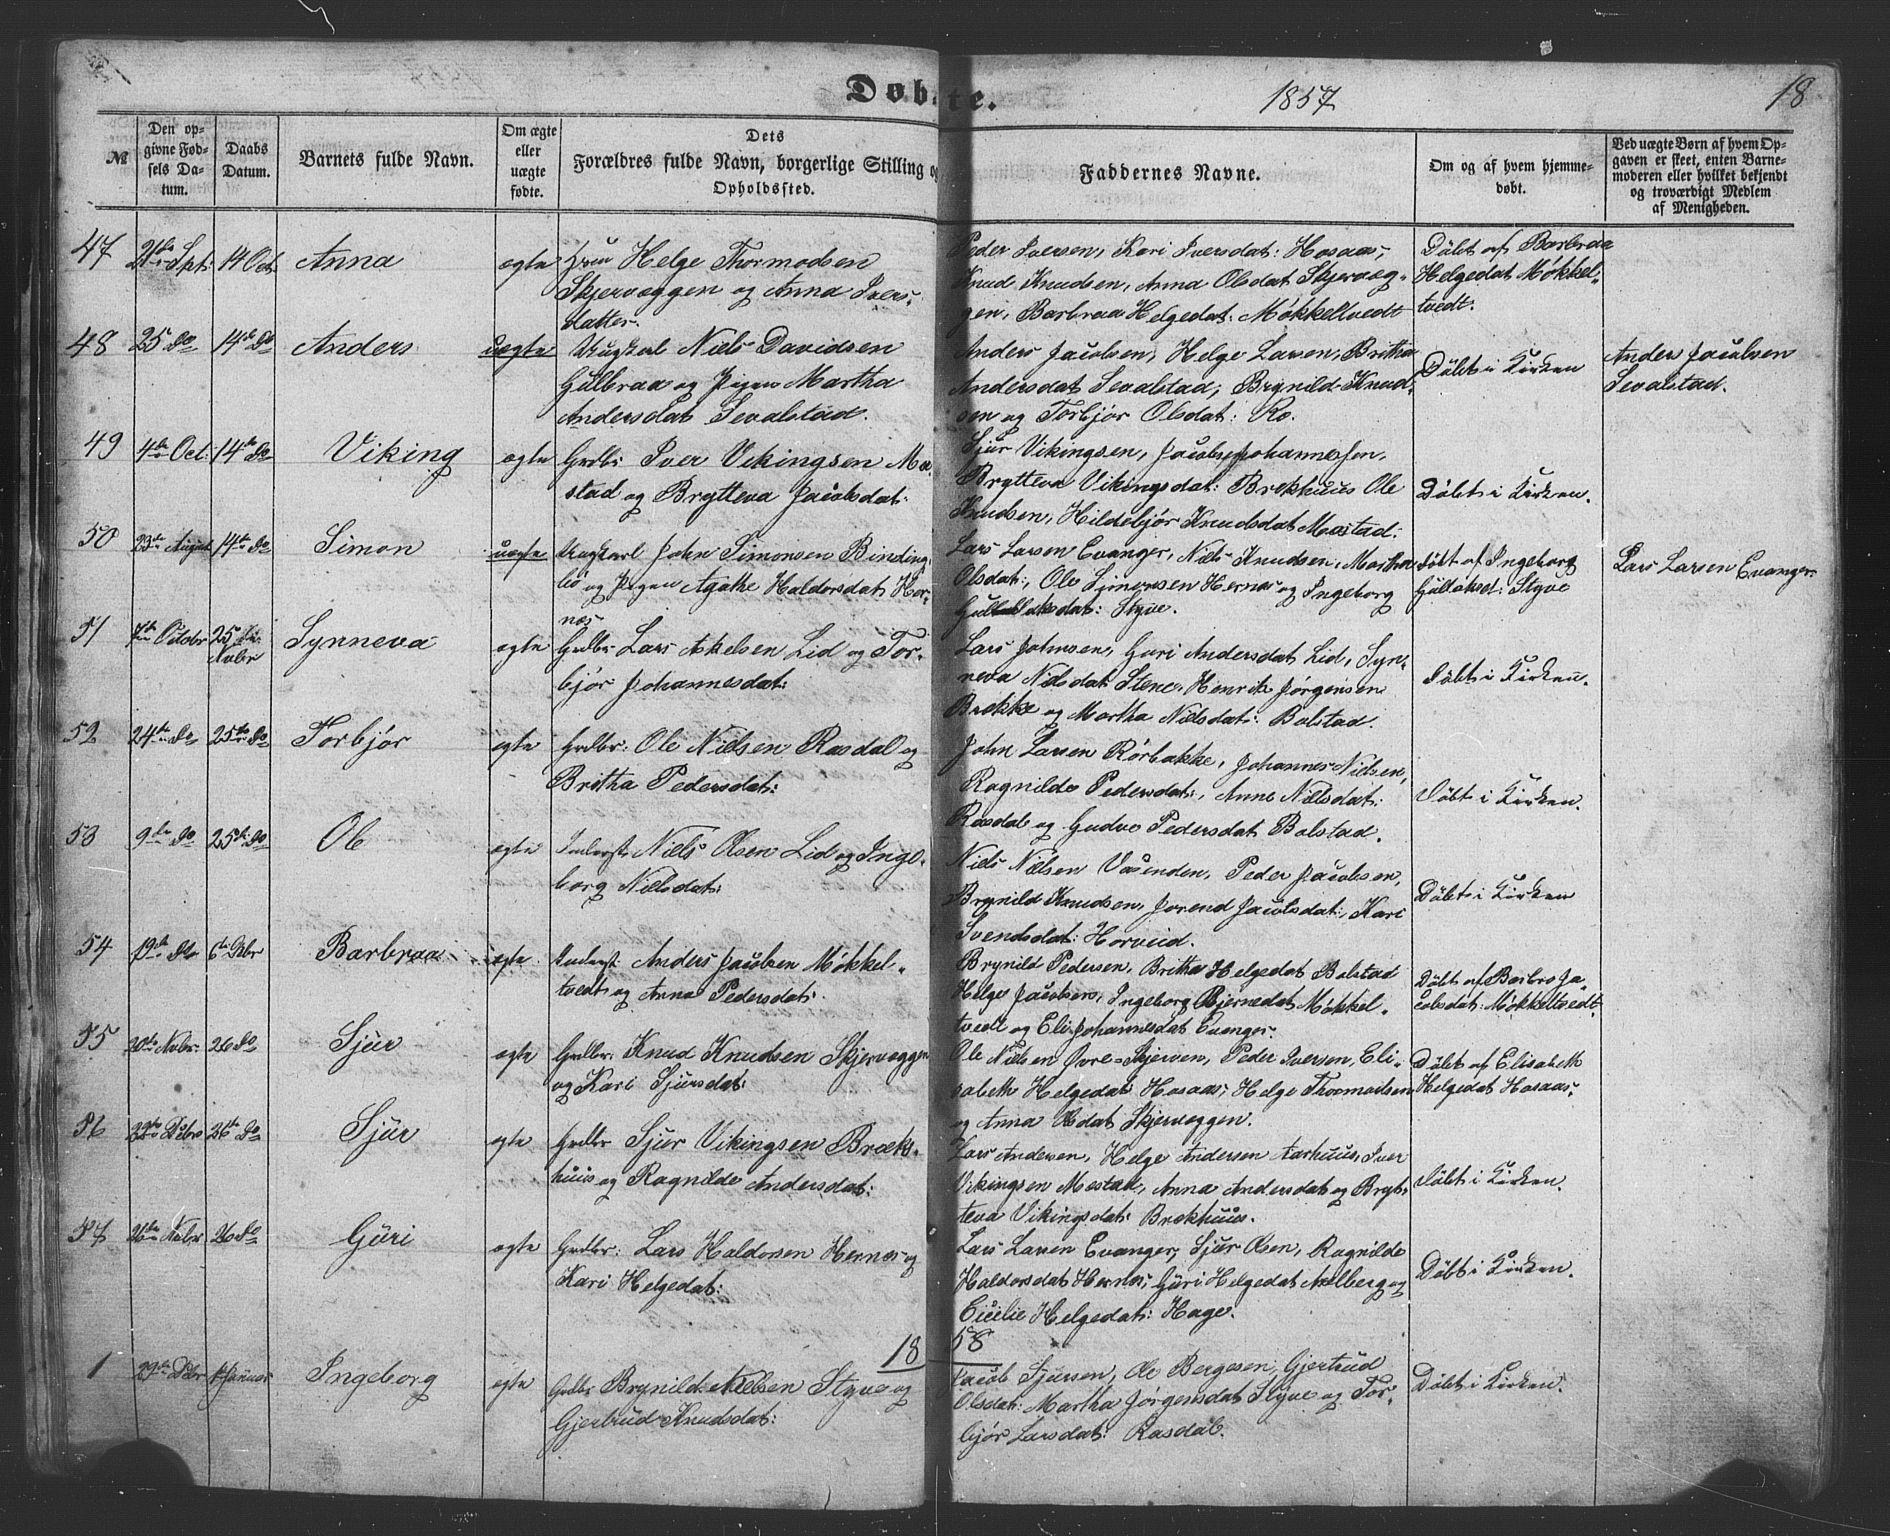 Døbte.
1857
18
№
Den op-
givne Fød-
sels Da-
tum.
Daabs
Datum.
Barnets fulde Navn.
Om ægte
eller
uægte
fødte.
Dets
Forældres fulde Navn, borgerlige Stilling og
Opholdssted.
Faddernes Navne.
Om og af hvem hjemme-
døbt.
Ved uægte Børn af hvem Op-
gaven er skeet, enten Barne-
moderen eller hvilket bekjendt
og troværdigt Medlem
af Menigheden.
47 21de Spt: 14 Oct Anna ægte
Helge Thormodsen
Skjervæggen og Anna Ivers-
datter.
Peder Iversen, Kari Iversdat: Hosaas,
Knud Knudsen, Anna Olsdat Skjervæg-
gen, Barbraa Helgedat: Møkkeltvedt
Döbt af Barbraa
Helgedat Møkkel-
tvedt.
48 25 do 14de do Anders uægte
Ungkarl Niels Davidsen
Gulbraa og Pigen Martha
Andersdat Sevalstad.
Anders Jacobsen, Helge Larsen, Britha
Andersdat Sevalstad, Brynild Knud-
sen og Torbjör Olsdat: Ro.
Döbt i Kirken
Anders Jacobsen
Sevalstad.
49 4de Oct: 14de do Viking ægte
Grdbr: Iver Vikingsen Mæ-
stad og Brytteva Jacobsdat:
Sjur Vikingsen, Jacob Johannessen,
Brytteva Vikingsdat: Brekhuus Ole
Knudsen, Hildebjör Knudsdat Mæstad:
Döbt i Kirken.
50 23de August 14de do Simon uægte
Ungkarl John Simonsen Binding-
bö og Pigen Agathe Haldorsdat Her-
næs
Lars Larsen Evanger, Niels Knudsen, Martha
Olsdat:, Ole Simonsen Hernæs og Ingeborg
Gullaksdat: Styve.
Döbt af Ingeborg
Gullaksd: Styve
Lars Larsen Evanger
51 7de Octobr 25de Novbr Synneva ægte
Grdbr Lars Askelsen Lid og Tor-
björ Johannesdat:
Lars Johnsen, Guri Andersdat Lid, Syn-
neva Nielsdat: Stene, Henrik Jörgensen
Brekke og Martha Nielsdat: Bolstad
Döbt i Kirken.
52 24de do 25de do Torbjör ægte
Grdbr: Ole Nielsen Rasdal og
Britha Pedersdat:
John Larsen Rörbakke, Johannes Nielsen,
Ragnilde Pedersdat:, Anne Nielsdat:
Rasdal og Gudve Pedersdat Bolstad.
Döbt i Kirken.
53 9de do 25de do Ole ægte
Inderst Niels Olsen Lid og Inge-
borg Nielsdat:
Niels Nielsen Vasenden, Peder Jacobsen,
Brynild Knudsen, Jorend Jacobsdat:, Kari
Svendsdat: Horvid.
Döbt i Kirken
54 19de do 6te Dcbr Barbraa ægte
Inderst Anders Jacobsen Møkkel-
tvedt og Anna Pedersdat:
Brynild Pedersen, Britha Helgedat Bolstad
Helge Jacobsen, Ingeborg Bjernedat Møkkel-
tvedt og Eli Johannesdat Evanger.
Döbt af Barbro Ja-
cobsdat: Møkkeltvedt.
55 20de Novbr: 26 do Sjur ægte
Grdbr: Knud Knudsen Skjervæggen
og Kari Sjursdat:
Ole Nielsen Övre-Skjerven, Peder Iversen, Eli-
sabeth Helgedat Hosaas, Helge Thormodsen
og Anna Olsdat Skjervæggen.
Döbt af Elisabeth
Helgedat Hosaas.
56 22de Dcbr 26de do Sjur ægte
Grdbr Sjur Vikingsen Bræk-
huus og Ragnilde Andersdat:
Lars Andersen, Helge Andersen Aarhuus, Iver
Vikingsen Mæstad, Anna Andersdat og Bryt-
teva Vikingsdat: Brækhuus.
Döbt i Kirken.
57 26de Novbr 26 do Guri ægte
Grdbr: Lars Haldorsen Hernæs og
Kari Helgedat:
Lars Larsen Evanger, Sjur Olsen, Ragnilde
Haldorsdat Hernæs, Guri Helgedat og
Cicilie Helgedat: Hage.
Döbt i Kirken.
1858
1 29de Dcbr 1 Januar Ingeborg ægte
Grdbr Brynild Nielsen Styve og
Gjertrud Knudsdat:
Jacob Sjursen, Ole Bergesen, Gjertrud
Olsdat: Martha Jörgensdat Styve og Tor-
björ Larsdat: Rasdal.
Döbt i Kirken.